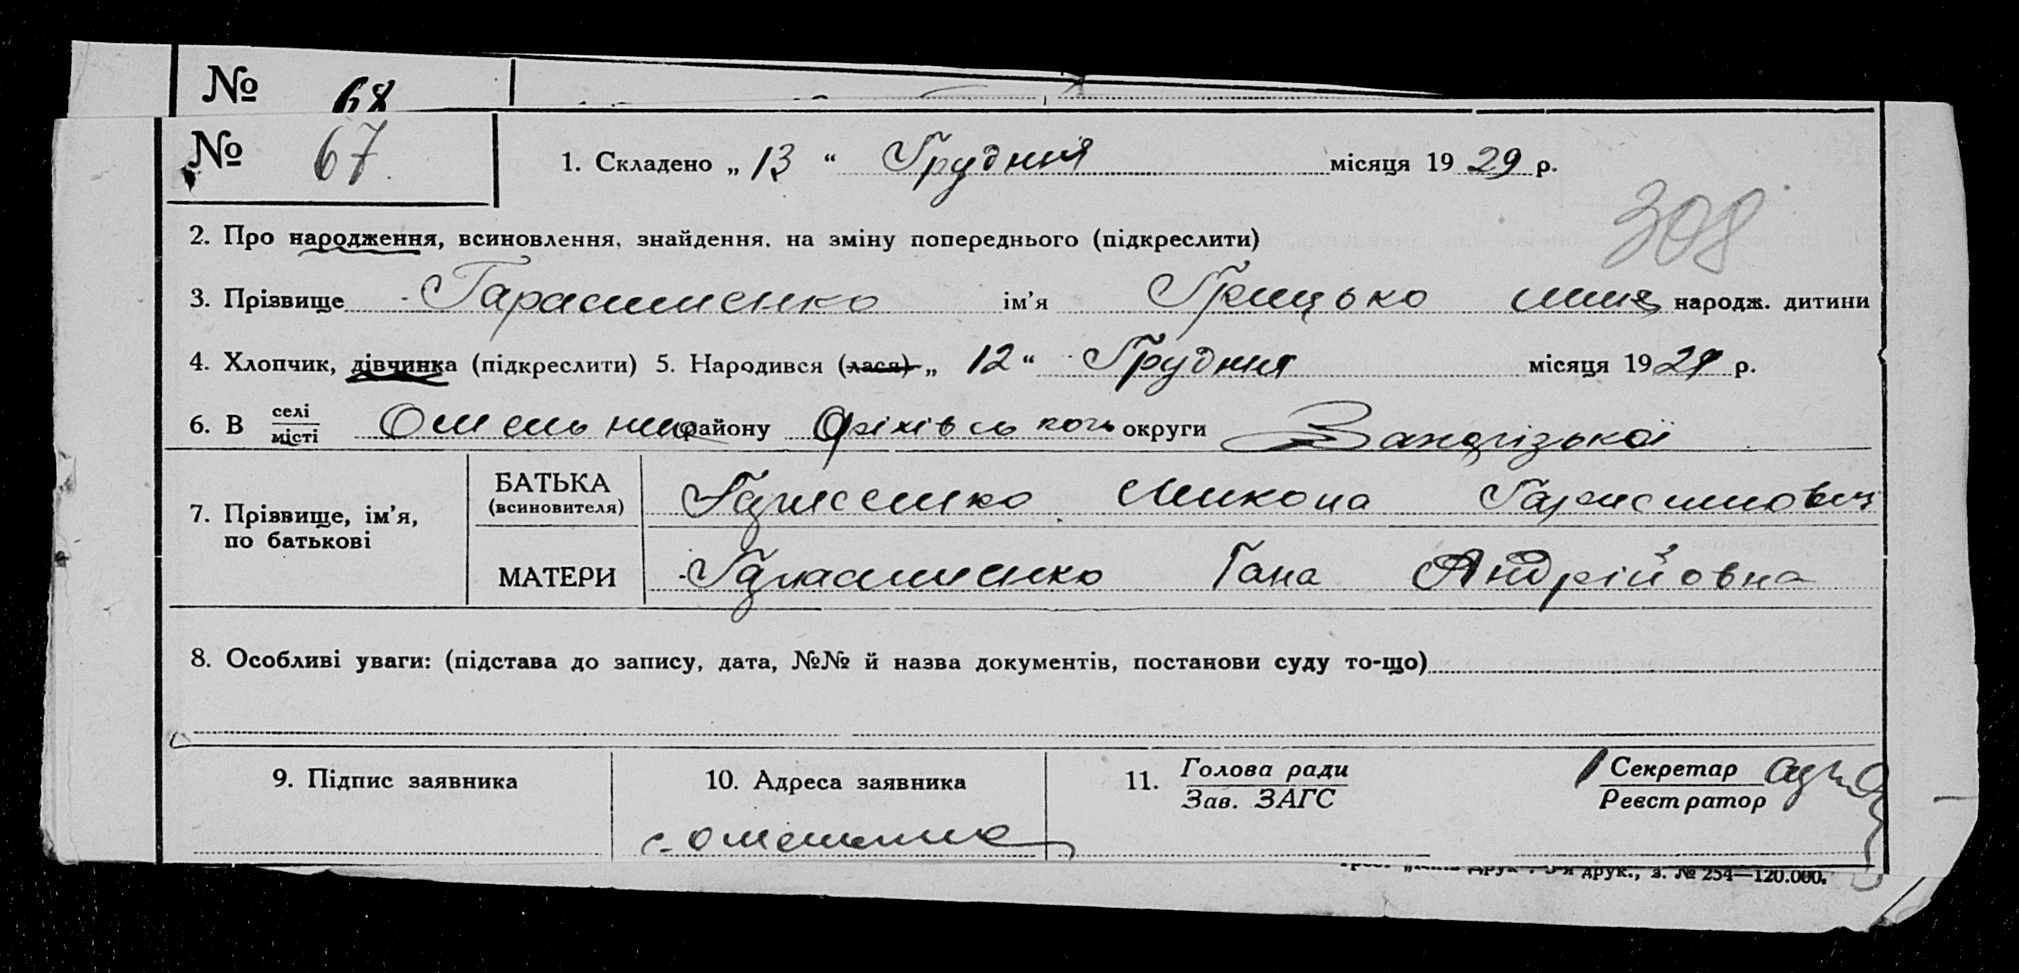 № 68
№ 67
1. Складено „ 13 “ Грудня місяця 19 29 р.
308
2. Про народження, всиновлення, знайдення, на зміну попереднього (підкреслити)
3. Прізвище Гарасименко ім’я Грицько народж. дитини
4. Хлопчик, дівчинка (підкреслити) 5. Народився (лася) „ 12 “ Грудня місяця 19 29 р.
6. В селі місті Омельник району Оріхівського округи Запорізької
7. Прізвище, ім’я, по батькові
БАТЬКА (всиновителя) Микола Гарасимович
МАТЕРИ Гарасименко Гана Андрійовна
8. Особливі уваги: (підстава до запису, дата, №№ й назва документів, постанови суду то-що)
9. Підпис заявника 10. Адреса заявника 11. Голова ради Зав. ЗАГС Секретар Реєстратор
с. Омельник
друк., з. № 254—120.000.